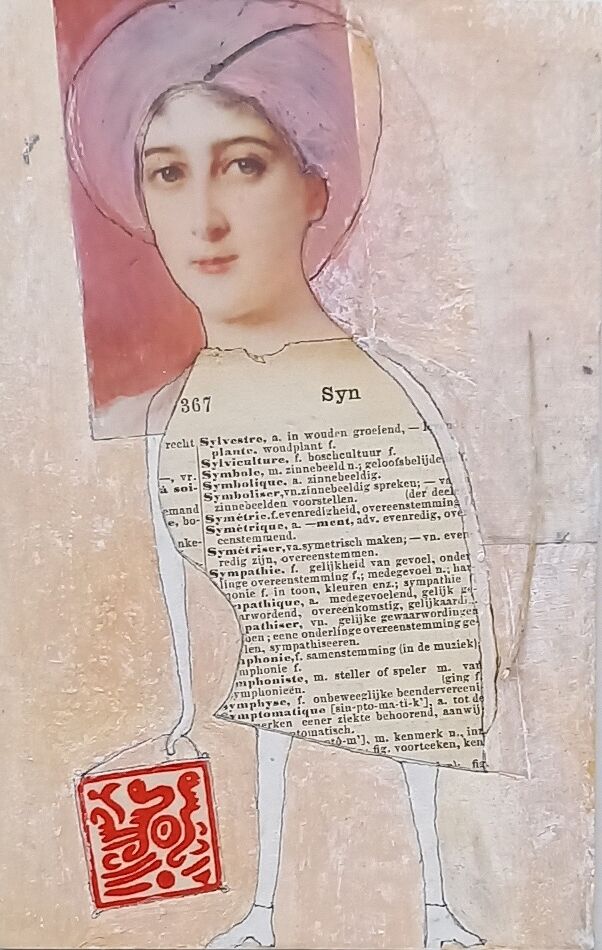 367 Syn
recht Sylvestre, a. in wouden groeiend, —
plante, woudplant f.
Sylviculture, f. boschcultuur f.
—, vr. Symbole, m. zinnebeeld n.; geloofsbelijde
à soi- Symbolique, a. zinnebeeldig.
Symboliser, vn. zinnebeeldig spreken; — va
emand zinnebeelden voorstellen. (der deel
e, bo- Symétrie. f. evenredigheid, overeenstemming
Symétrique, a. —ment, adv. evenredig, ove
nke- eenstemmend.
Symétriser, va. symetrisch maken; — vn. even
redig zijn, overeenstemmen.
Sympathie. f. gelijkheid van gevoel, onder
linge overeenstemming f.; medegevoel n.; har
monie f. in toon, kleuren enz.; sympathie
mpathique, a. medegevoelend, gelijk ge-
arwordend, overeenkomstig, gelijkaardi
pathiser, vn. gelijke gewaarwordingen
oen; eene onderlinge overeenstemming ge
len, sympathiseeren.
mphonie, f. samenstemming (in de muziek)
mphonie f.
mphoniste, m. steller of speler m. van
ymphonieën. (ging f.
ymphyse, f. onbeweeglijke beendervereeni
ymptomatique [sin-pto-ma-ti-k'], a. tot de
merken eener ziekte behoorend, aanwij
ptomatisch.
m'], m. kenmerk n., inz
fig. voorteeken, ken
fig.